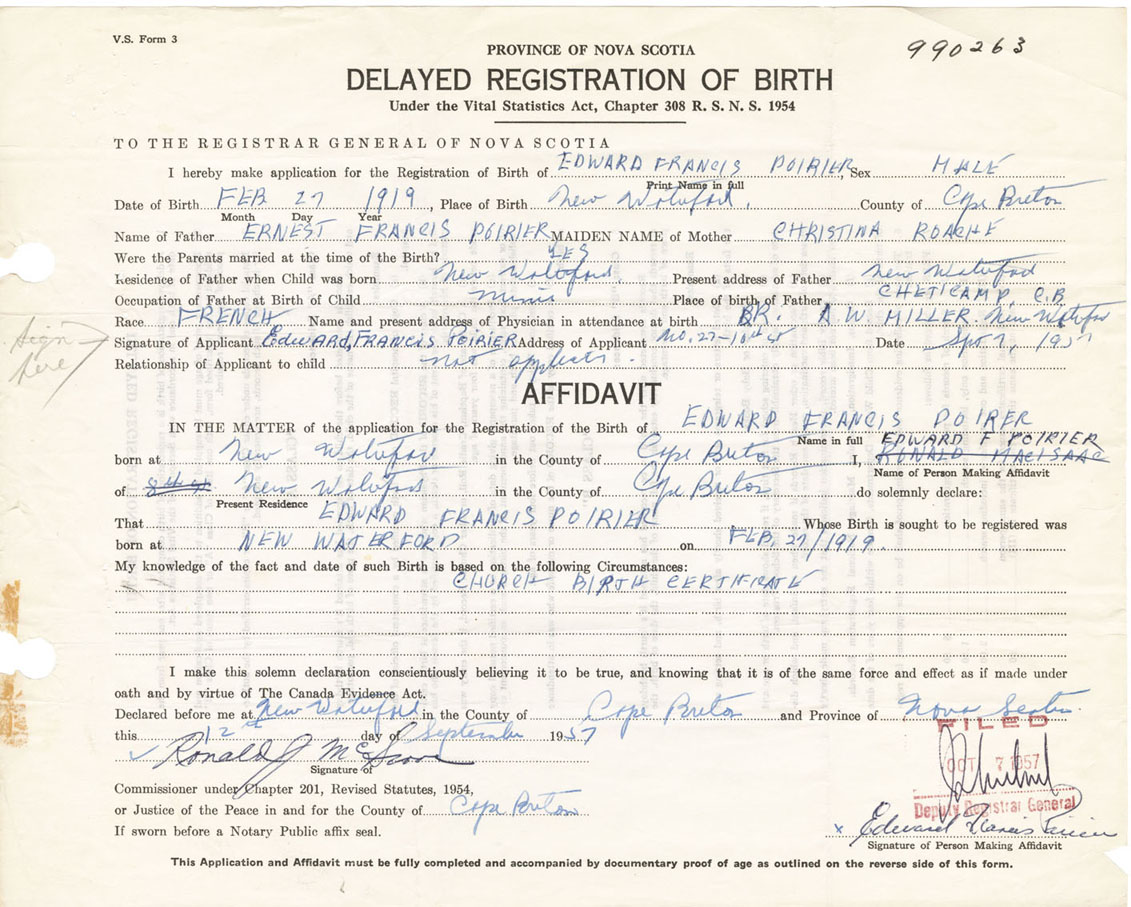 V.S. Form 3
990263
PROVINCE OF NOVA SCOTIA
DELAYED REGISTRATION OF BIRTH
Under the Vital Statistics Act, Chapter 308 R. S. N. S. 1954
TO THE REGISTRAR GENERAL OF NOVA SCOTIA
I hereby make application for the Registration of Birth of EDWARD FRANCIS POIRIER, Sex MALE
Print Name in full
Date of Birth FEB 27 1919, Place of Birth New Waterford. County of Cape Breton
Month Day Year
Name of Father ERNEST FRANCIS POIRIER MAIDEN NAME of Mother CHRISTINA ROACHE
Were the Parents married at the time of the Birth? YES
Residence of Father when Child was born New Waterford. Present address of Father New Waterford
Occupation of Father at Birth of Child Miner Place of birth of Father CHETICAMP, C.B.
Race FRENCH Name and present address of Physician in attendance at birth DR. A W. MILLER. New Waterford
Sign here
Signature of Applicant Edward, FRANCIS POIRIER Address of Applicant NO. 27-10th St Date Sept 7, 1957
Relationship of Applicant to child not applicable.
AFFIDAVIT
IN THE MATTER of the application for the Registration of the Birth of EDWARD FRANCIS POIRER
Name in full EDWARD F POIRIER
born at New Waterford in the County of Cape Breton I, RONALD MACISAAC
Name of Person Making Affidavit
of New Waterford in the County of Cape Breton do solemnly declare:
Present Residence
That EDWARD FRANCIS POIRIER Whose Birth is sought to be registered was
born at NEW WATERFORD on FEB, 27/1919.
My knowledge of the fact and date of such Birth is based on the following Circumstances:
CHURCH BIRTH CERTIFICATE
I make this solemn declaration conscientiously believing it to be true, and knowing that it is of the same force and effect as if made under
oath and by virtue of The Canada Evidence Act.
Declared before me at New Waterford in the County of Cape Breton and Province of Nova Scotia.
this 12th day of September 1957
FILED
Ronald J
Signature of
OCT 7 1957
Commissioner under Chapter 201, Revised Statutes, 1954,
Deputy Registrar General
or Justice of the Peace in and for the County of Cape Breton
If sworn before a Notary Public affix seal.
x Edward Francis Poirier
Signature of Person Making Affidavit
This Application and Affidavit must be fully completed and accompanied by documentary proof of age as outlined on the reverse side of this form.